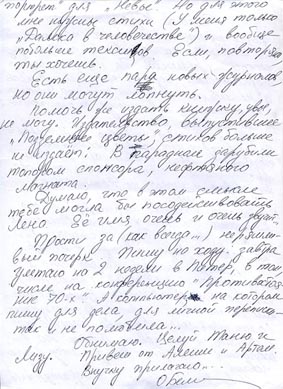 портрет" для „Невы". Но для этого
мне нужны стихи (У меня только
в человечестве") и вообще
побольше текстов Если, повторяю
ты хочешь.
Есть еще пара новых журналов,
но они могут лопнуть.
Помочь же издать книжечку, увы,
не могу. Издательство, выпустившее
„Подземные цветы", стихов больше
не издаёт: В парадном зарубили
топором спонсора, нефтяного
магната.
Думаю, что в этом смысле
тебе могла бы посодействовать
Лена. Её имя очень и очень звучит.
Прости за (как всегда...) неразличи-
вый почерк. Пишу на ходу: завтра
улетаю на 2 недели в Питер, в том
числе на конференцию
70-х". А компьютер, на котором
пишу для дела, для личной переписки
так и не поменяла...
Обнимаю. Целуй Таню и
Лизу. Привет от Алеши и Артёма.
Внучку прилагаю...